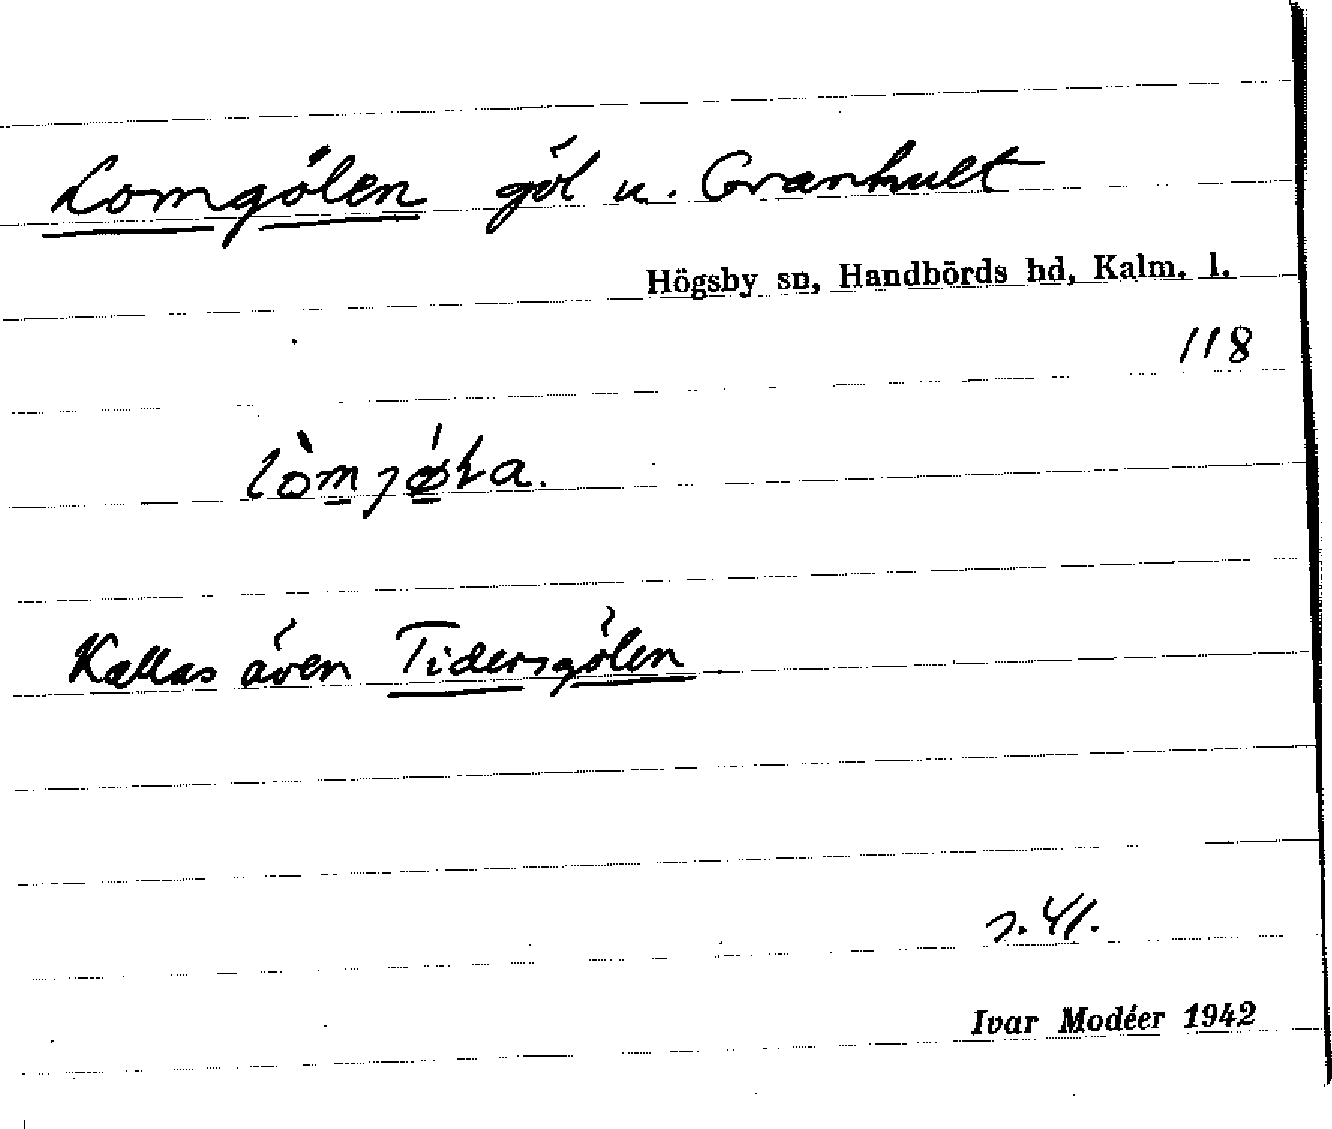 Lomgölen göl u. Granhult
Högsby sn, Handbörds hd, Kalm. l.
118
Kallas även Tidersgölen
s. 41.
Ivar Modéer 1942